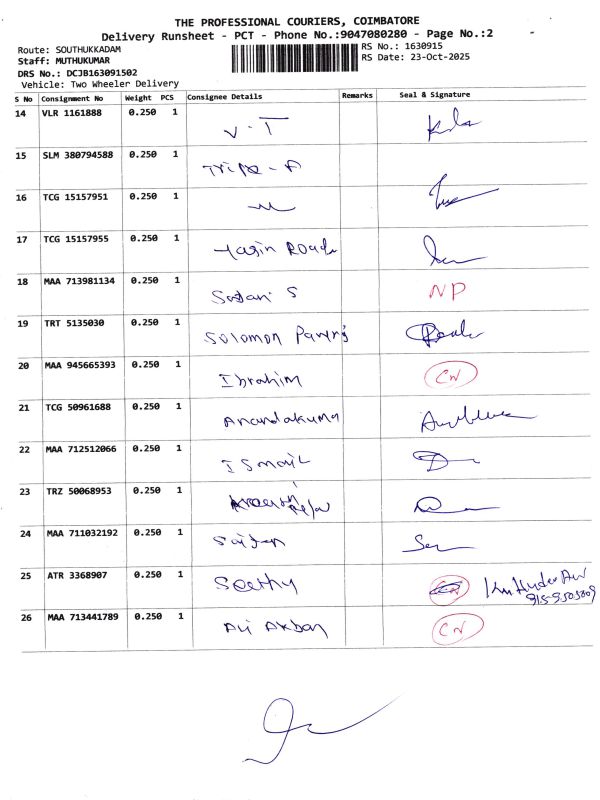 THE PROFESSIONAL COURIERS, COIMBATORE
Delivery Runsheet - PCT - Phone No.:9047080280 - Page No.:2
Route: SOUTHUKKADAM
RS No.: 1630915
Staff: MUTHUKUMAR
RS Date: 23-Oct-2025
DRS No.: DCJB163091502
Vehicle: Two Wheeler Delivery
S No Consignment No Weight PCS Consignee Details Remarks Seal & Signature
14 VLR 1161888 0.250 1 V-T
15 SLM 380794588 0.250 1
16 TCG 15157951 0.250 1
17 TCG 15157955 0.250 1
18 MAA 713981134 0.250 1 S NP
19 TRT 5135030 0.250 1 Solomon
20 MAA 945665393 0.250 1 Ibrahim CN
21 TCG 50961688 0.250 1 Anandakumar
22 MAA 712512066 0.250 1 Ismail
23 TRZ 50068953 0.250 1
24 MAA 711032192 0.250 1
25 ATR 3368907 0.250 1 CN
26 MAA 713441789 0.250 1 Ali Akbar CN